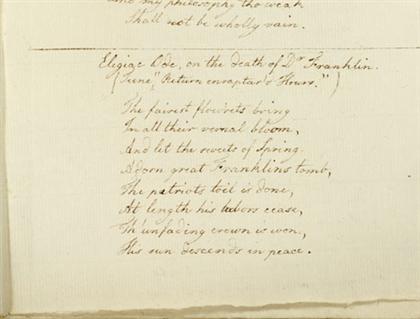 and my philosophy tho weak
Shall not be wholly vain.
Elegiac Ode, on the death of Dr Franklin.
(Tune, "Return enraptur'd Hours.")
The fairest flow'rets bring
In all their vernal bloom,
And let the sweets of Spring
Adorn great Franklins tomb,
The patriots toil is done,
At length his labors cease,
Th' unfading crown is won,
His sun descends in peace.